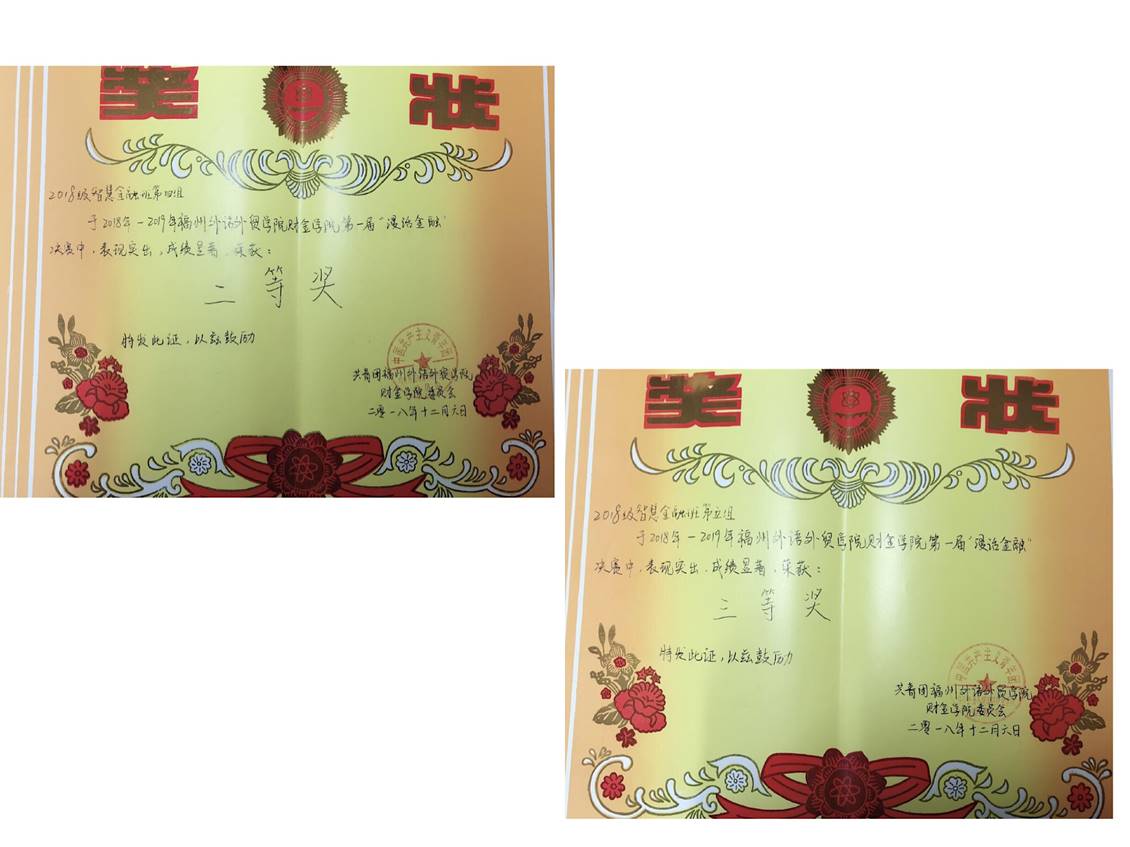 奖状
2018级智慧金融班第四组
于2018年-2019年福州外语外贸学院财金学院第一届“漫话金融”
决赛中,表现突出,成绩显著,荣获:
二等奖
特发此证,以兹鼓励
中国共产主义青年团
共青团福州外语外贸学院
财金学院委员会
二零一八年十二月六日
奖状
2018级智慧金融班第五组
于2018年-2019年福州外语外贸学院财金学院第一届“漫话金融”
决赛中,表现突出,成绩显著,荣获:
三等奖
特发此证,以兹鼓励
中国共产主义青年团
共青团福州外语外贸学院
财金学院委员会
二零一八年十二月六日